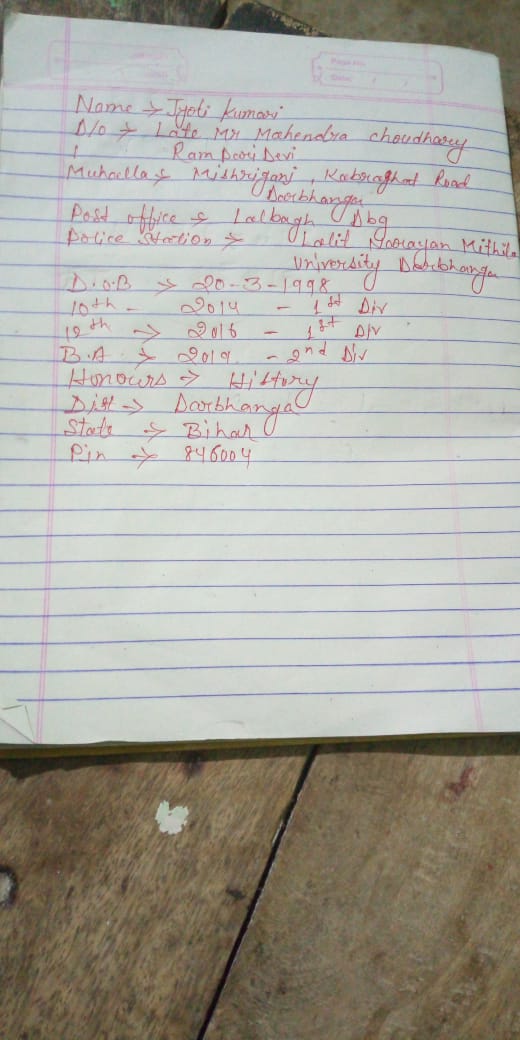 Page No.
Date: / /
Name → Jyoti Kumari
D/o → Late Mr Mahendra choudhary
Ram Pari Devi
Muhaella → Mishriganj, Kabraghat Road
Darbhanga
Post office → Lalbagh Dbg
Police Station → Lalit Narayan Mithila
University Darbhanga
D.O.B → 20-3-1998
10th - 2014 - 1st Div
12th → 2016 - 1st Div
B.A → 2019 - 2nd Div
Honours → History
Dist → Darbhanga
State → Bihar
Pin → 846004